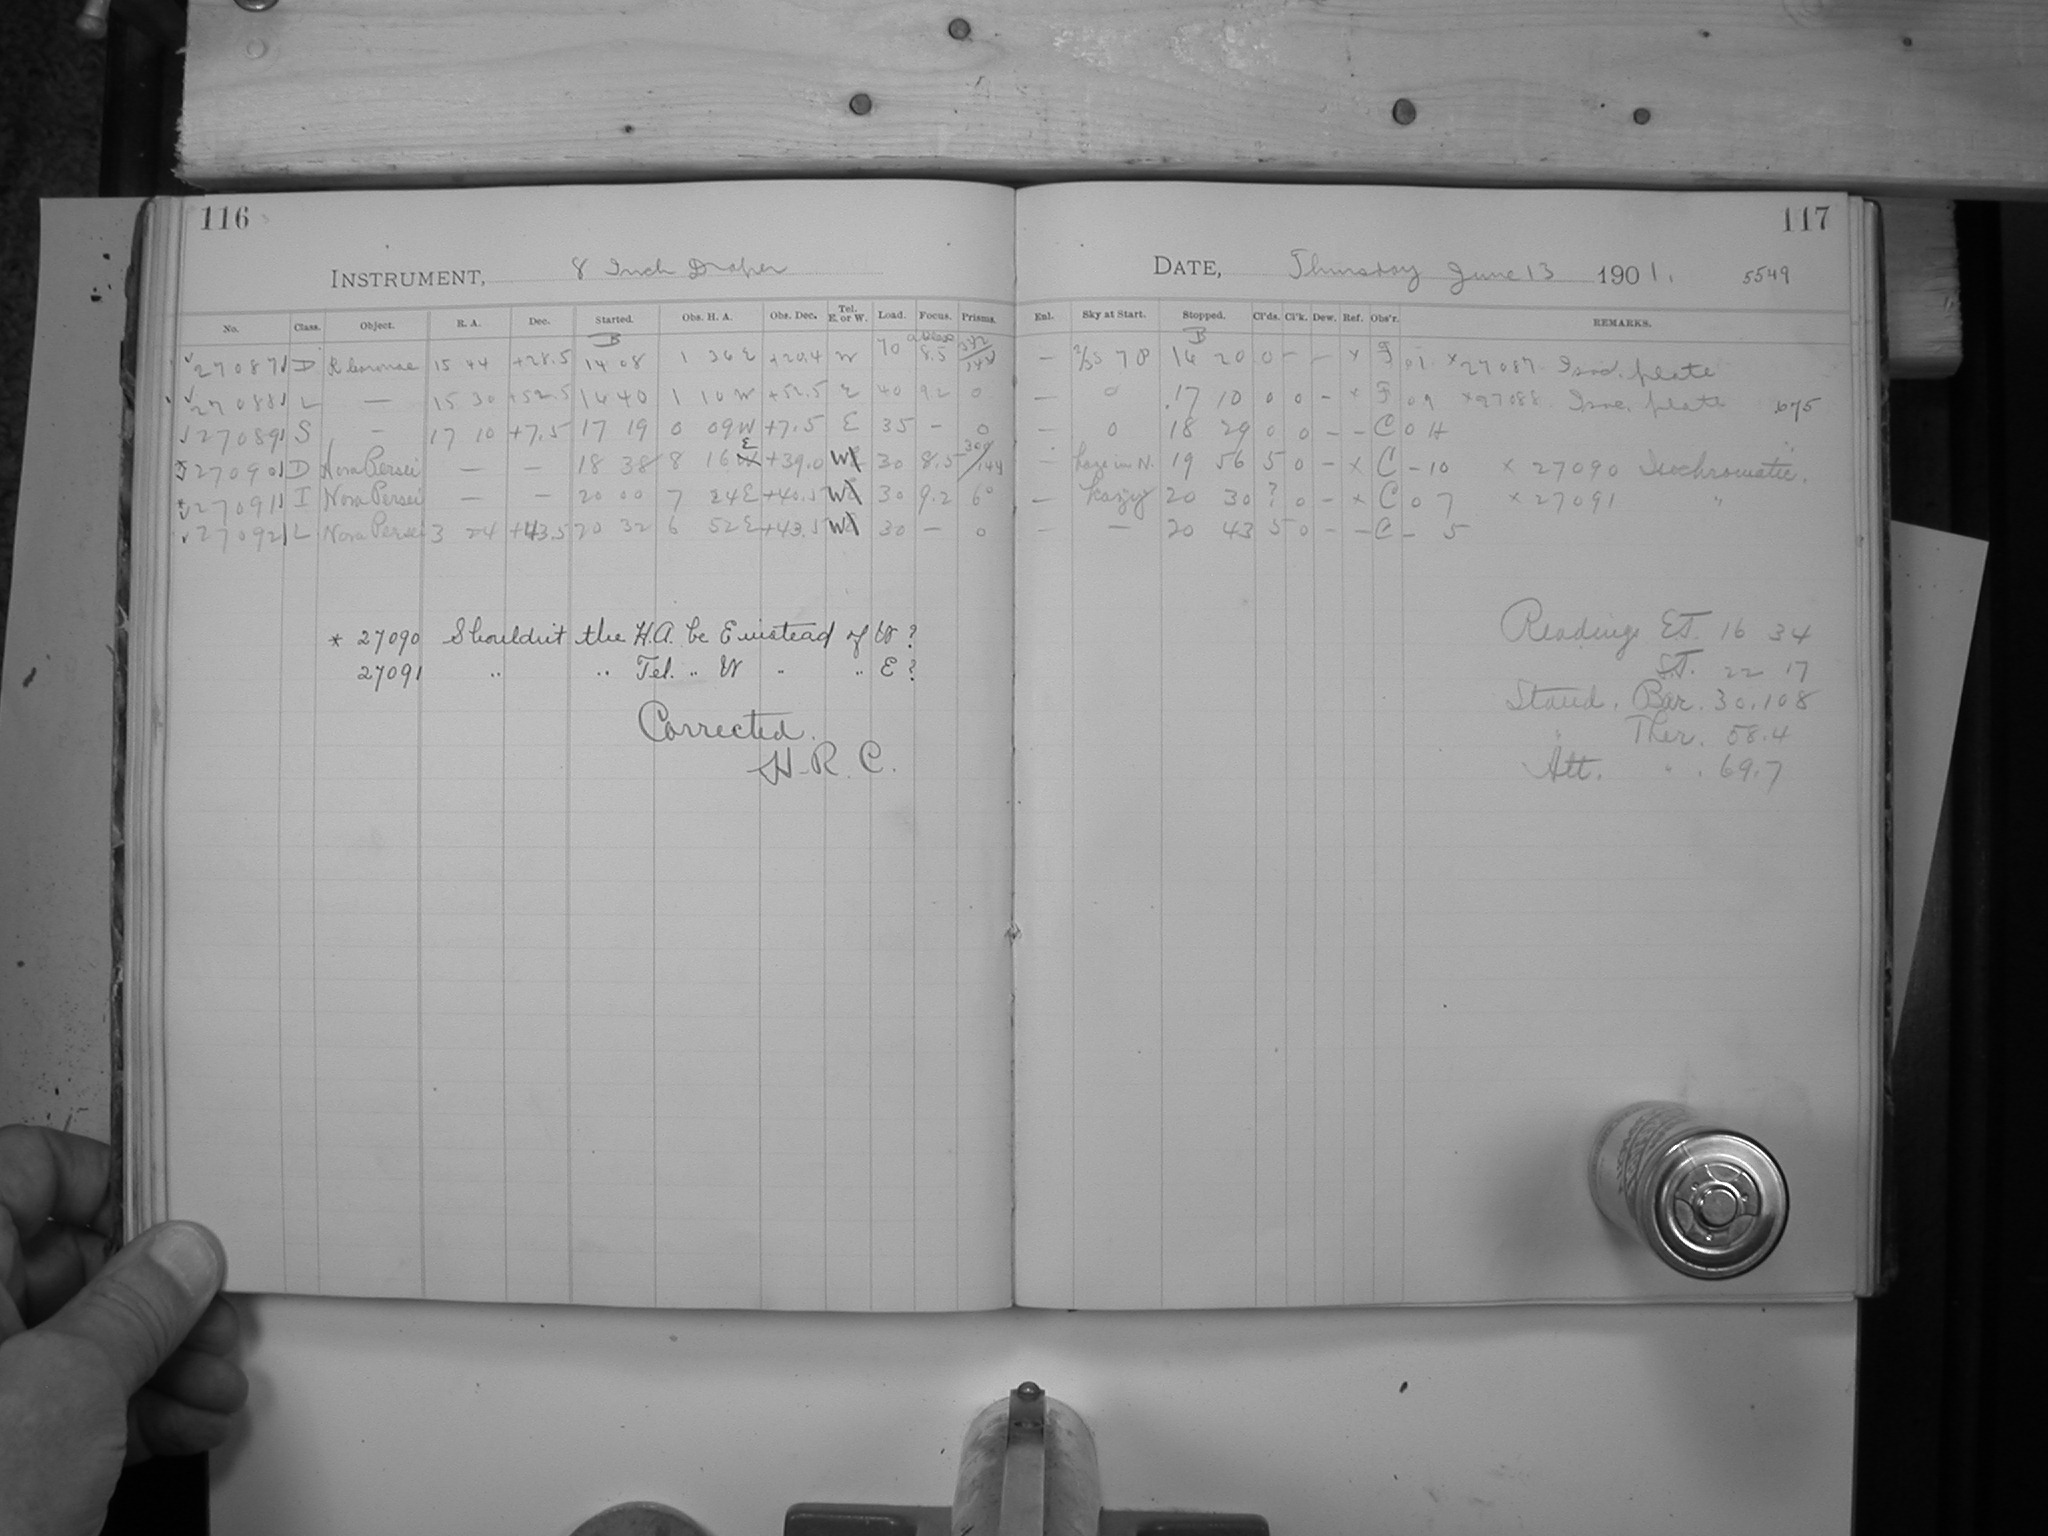 116
INSTRUMENT, 8 Inch Draper
No. Class. Object. R. A. Dec. Started. Obs. H. A. Obs. Dec. Tel. E. or W. Load. Focus. Prisms.
B
27087 D R Coronae 15 44 +28.5 14 08 1 36 E W 70 8.5
27088 L — 15 30 +52.5 16 40 1 10 W +52.5 E 40 9.2 0
27089 S — 17 10 +7.5 17 19 0 09 W +7.5 E 35 – 0
27090 D Nova Persei — — 18 38 8 16 E +39.0 W 30 8.5 300/144
27091 I Nova Persei — — 20 00 7 24 E +40.5 W 30 9.2 60
27092 L Nova Persei 3 24 +43.5 20 32 6 52 E +43.5 W 30 – 0
* 27090 Shouldn't the H.A. be E instead of W ?
27091 " " Tel. " W " " E ?
Corrected.
H. R. C.
117
DATE, Thursday June 13 1901. 5549
Enl. Sky at Start. Stopped. Cl'ds. Cl'k. Dew. Ref. Obs'r. REMARKS.
B
— 16 20 0 – – x F 01 x 27087 plate
— 0 17 10 0 0 – x F 09 x 27088 plate 675
— 0 18 29 0 0 – – C 0 11
— haze in N. 19 56 5 0 – x C – 10 x 27090 Isochromatic.
— hazy 20 30 ? 0 – x C 0 7 x 27091 "
— — 20 43 5 0 – – C – 5
Readings E.T. 16 34
S.T. 22 17
Stand. Bar. 30.108
" Ther. 58.4
Att. " . 69.7